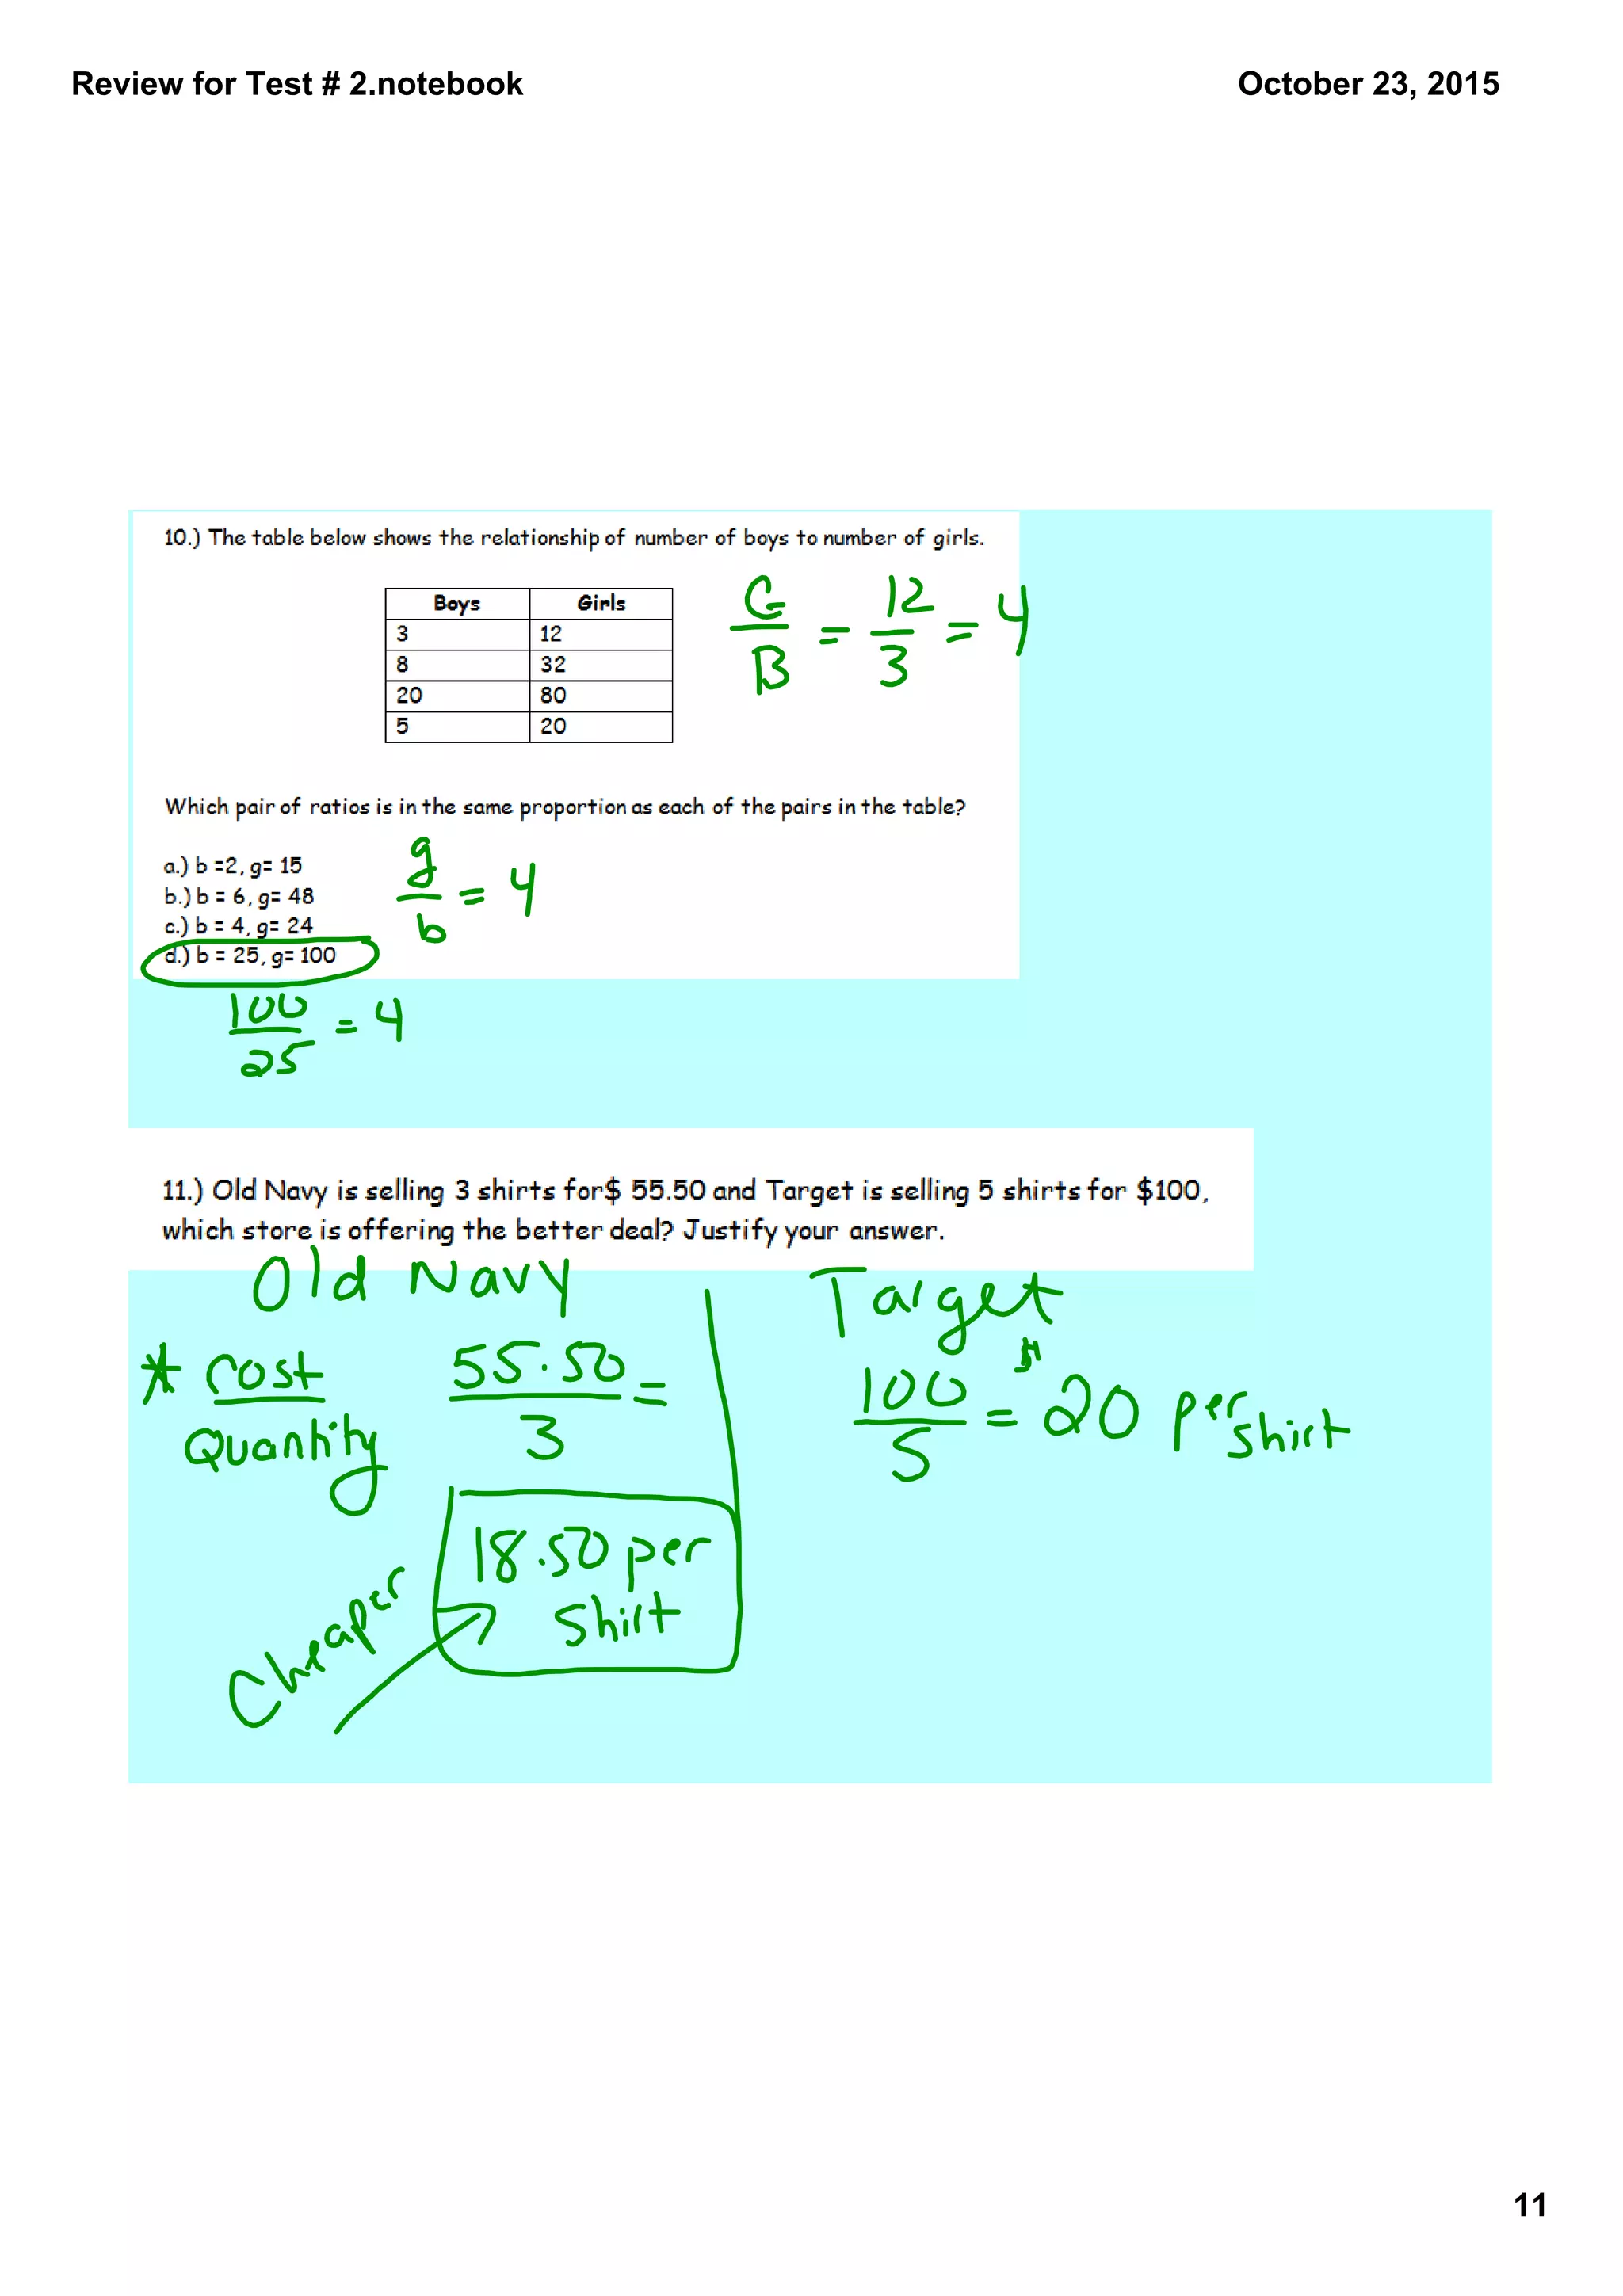 Review for Test # 2.notebook
October 23, 2015
10.) The table below shows the relationship of number of boys to number of girls.
Boys Girls
3 12
8 32
20 80
5 20
G/B = 12/3 = 4
Which pair of ratios is in the same proportion as each of the pairs in the table?
a.) b =2, g= 15
b.) b = 6, g= 48
c.) b = 4, g= 24
d.) b = 25, g= 100
g/b = 4
100/25 = 4
11.) Old Navy is selling 3 shirts for$ 55.50 and Target is selling 5 shirts for $100,
which store is offering the better deal? Justify your answer.
Old Navy
* cost/Quantity 55.50/3 =
18.50 per
shirt
Cheaper
Target
100/5 = $20 per shirt
11